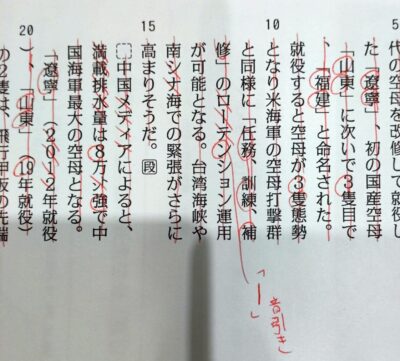 5
代の空母を改修して就役し
た「遼寧」、初の国産空母
「山東」に次いで3隻目で
、「福建」と命名された。
就役すると空母が3隻態勢
10
となり米海軍の空母打撃群
と同様に「任務、訓練、補
修」のローテンション運用
が可能となる。台湾海峡や
南シナ海での緊張がさらに
15
高まりそうだ。段
中国メディアによると、
満載排水量は8万㌧強で中
国海軍最大の空母となる。
「遼寧」(2012年就役
20
)、「山東」(19年就役)
の2隻は、飛行甲板の先端
「ー」
音引き